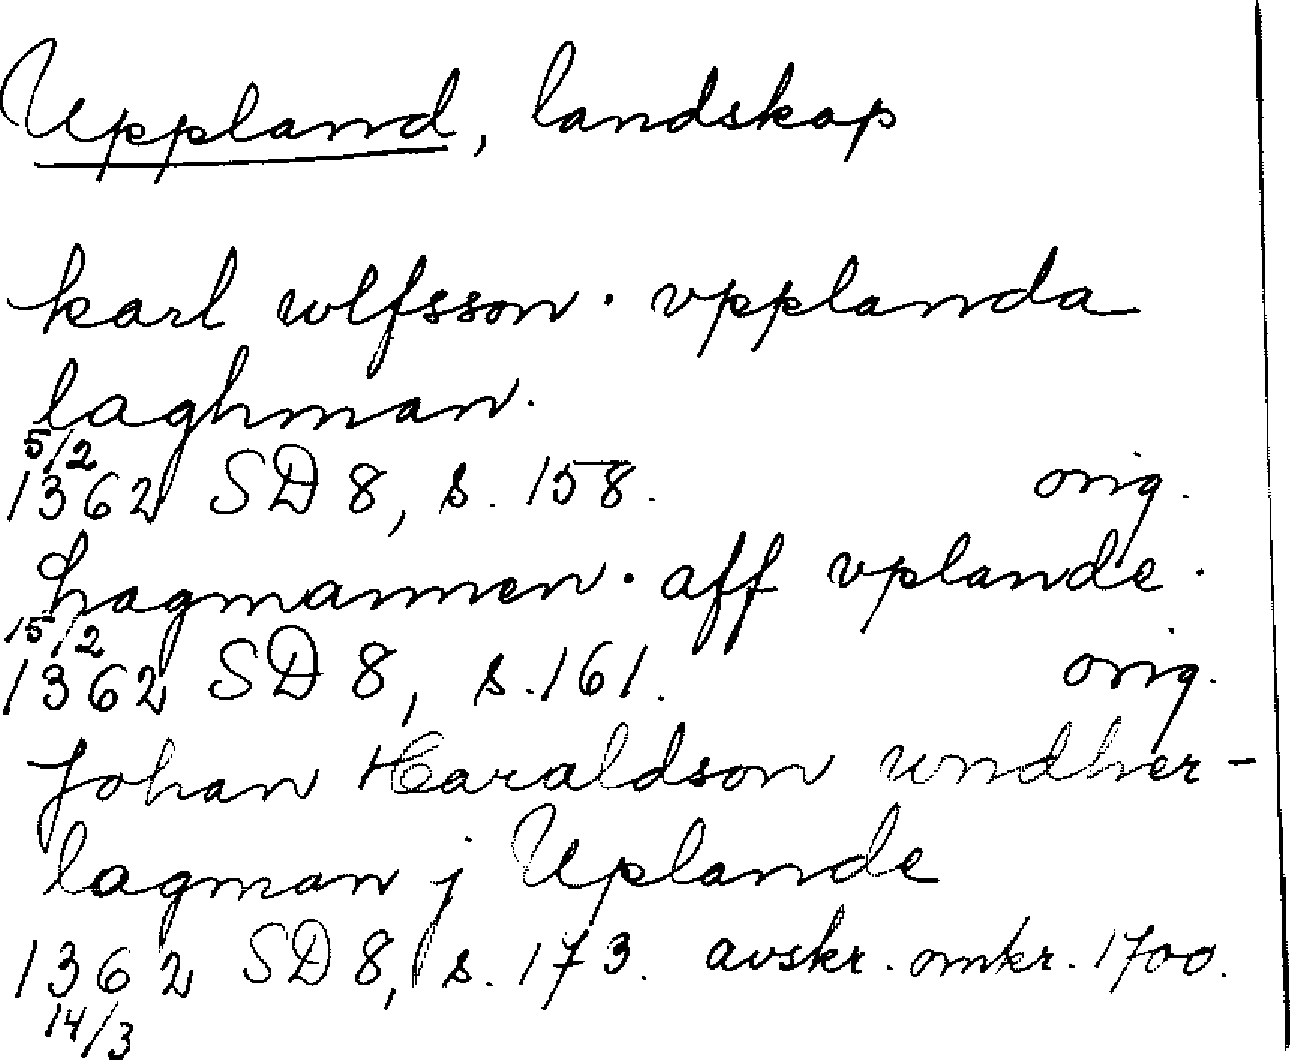 Uppland, landskap
karl wlfsson · vpplanda
laghman.
5/2
1362 SD 8, s. 158. orig.
hagmannen · aff vplande ·
15/2
1362 SD 8, s. 161. orig.
Johan Haraldson undher-
lagman j Uplande
1362 SD 8, s. 173. avskr. omkr. 1700.
14/3